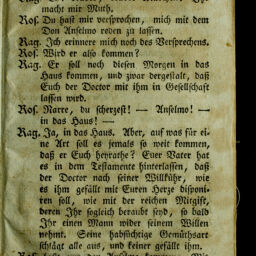 macht mir Muth.
Ros. Du hast mir versprochen, mich mit dem
Don Anselmo reden zu lassen.
Rag. Ich erinnere mich noch des Versprechens.
Ros. Wird er also kommen?
Rag. Er soll noch diesen Morgen in das
Haus kommen, und zwar dergestalt, daß
Euch der Doctor mit ihm in Gesellschaft
lassen wird.
Ros. Narre, du scherzest! — Anselmo! —
in das Haus! —
Rag. Ja, in das Haus. Aber, auf was für ei-
ne Art soll es jemals so weit kommen,
daß er Euch heyrathe? Euer Vater hat
es in dem Testamente hinterlassen, daß
der Doctor nach seiner Willkühr, wie
es ihm gefällt mit Euren Herze disponi-
ren soll, wie mit der reichen Mitgift,
deren Ihr sogleich beraubt seyd, so bald
Ihr einen Mann wider seinem Willen
nehmt. Seine habsüchtige Gemüthsart
schlägt alle aus, und keiner gefällt ihm.